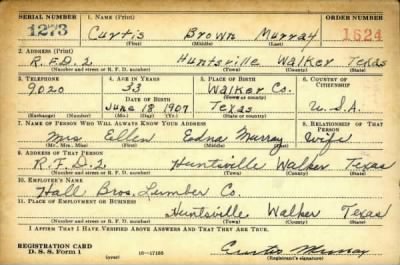 SERIAL NUMBER 1. NAME (Print) ORDER NUMBER
1273 Curtis Brown Murray 1624
(First) (Middle) (Last)
2. ADDRESS (Print)
R.F.D. 2 Huntsville Walker Texas
(Number and street or R. F. D. number) (Town) (County) (State)
3. TELEPHONE 4. AGE IN YEARS 5. PLACE OF BIRTH 6. COUNTRY OF CITIZENSHIP
9020 33 Walker Co.
DATE OF BIRTH (Town or county)
June 18 1907 Texas U.S.A.
(Exchange) (Number) (Mo.) (Day) (Yr.) (State or country)
7. NAME OF PERSON WHO WILL ALWAYS KNOW YOUR ADDRESS 8. RELATIONSHIP OF THAT PERSON
Mrs Ellen Edna Murray Wife
(Mr., Mrs., Miss) (First) (Middle) (Last)
9. ADDRESS OF THAT PERSON
R.F.D. 2 Huntsville Walker Texas
(Number and street or R. F. D. number) (Town) (County) (State)
10. EMPLOYER'S NAME
Hall Bros. Lumber Co.
11. PLACE OF EMPLOYMENT OR BUSINESS
Huntsville Walker Texas
(Number and street or R. F. D. number) (Town) (County) (State)
I AFFIRM THAT I HAVE VERIFIED ABOVE ANSWERS AND THAT THEY ARE TRUE.
REGISTRATION CARD
D. S. S. Form 1 (over) 16—17105 Curtis Murray
(Registrant's signature)